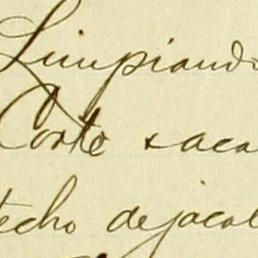 Limpiando
Corte + aca
techo de jacal